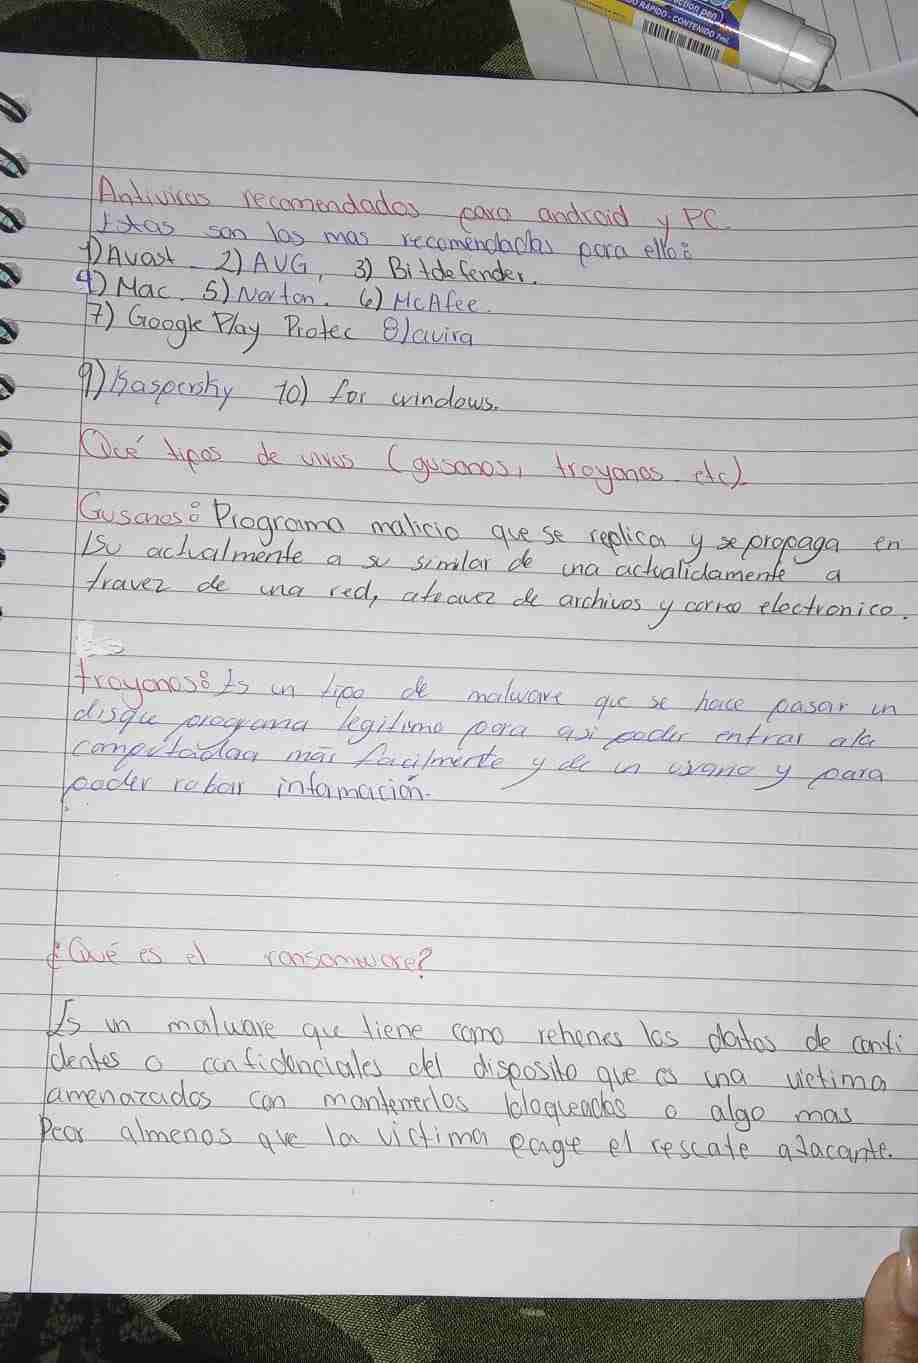 ction pen
O RÁPIDO - CONTENIDO 7ml.
Antivirus recomendados para android y PC.
Estas son las mas recomendadas para ello:
1) Avast 2) AVG, 3) Bitdefender.
4) Mac. 5) Norton. 6) McAfee.
7) Google Play Protec 8) avira
9) Kaspersky 10) for windows.
Qué tipos de virus (gusanos, troyanos. etc).
Gusanos: Programa malicio que se replica y se propaga en
su actualmente a su similar de una actualidamente a
travez de una red, atravez de archivos y correo electronico.
troyanos: Es un tipo de malware que se hace pasar un
disque programa legitimo para asi poder entrar ala
más facilmente y de un y para
poder robar infamación.
¿Qué es el ransomware?
Es un malware que tiene como rehenes los datos de confi
dentes o confidenciales del disposito que es una victima
amenazados con mantenerlos bloqueados o algo mas
Peor almenos que la victima pague el rescate atacante.